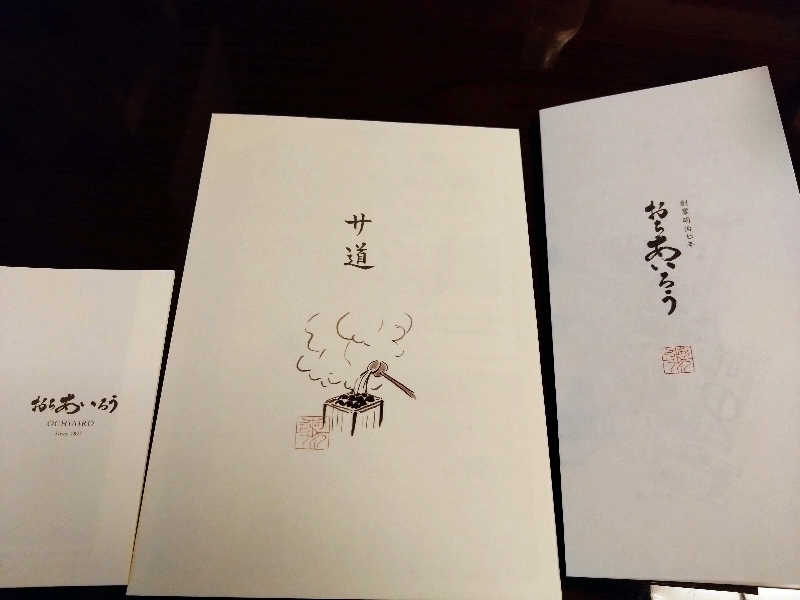 おちあいろう
OCHIAIRO
Since 1874
サ道
創業明治七年
おちあいろう